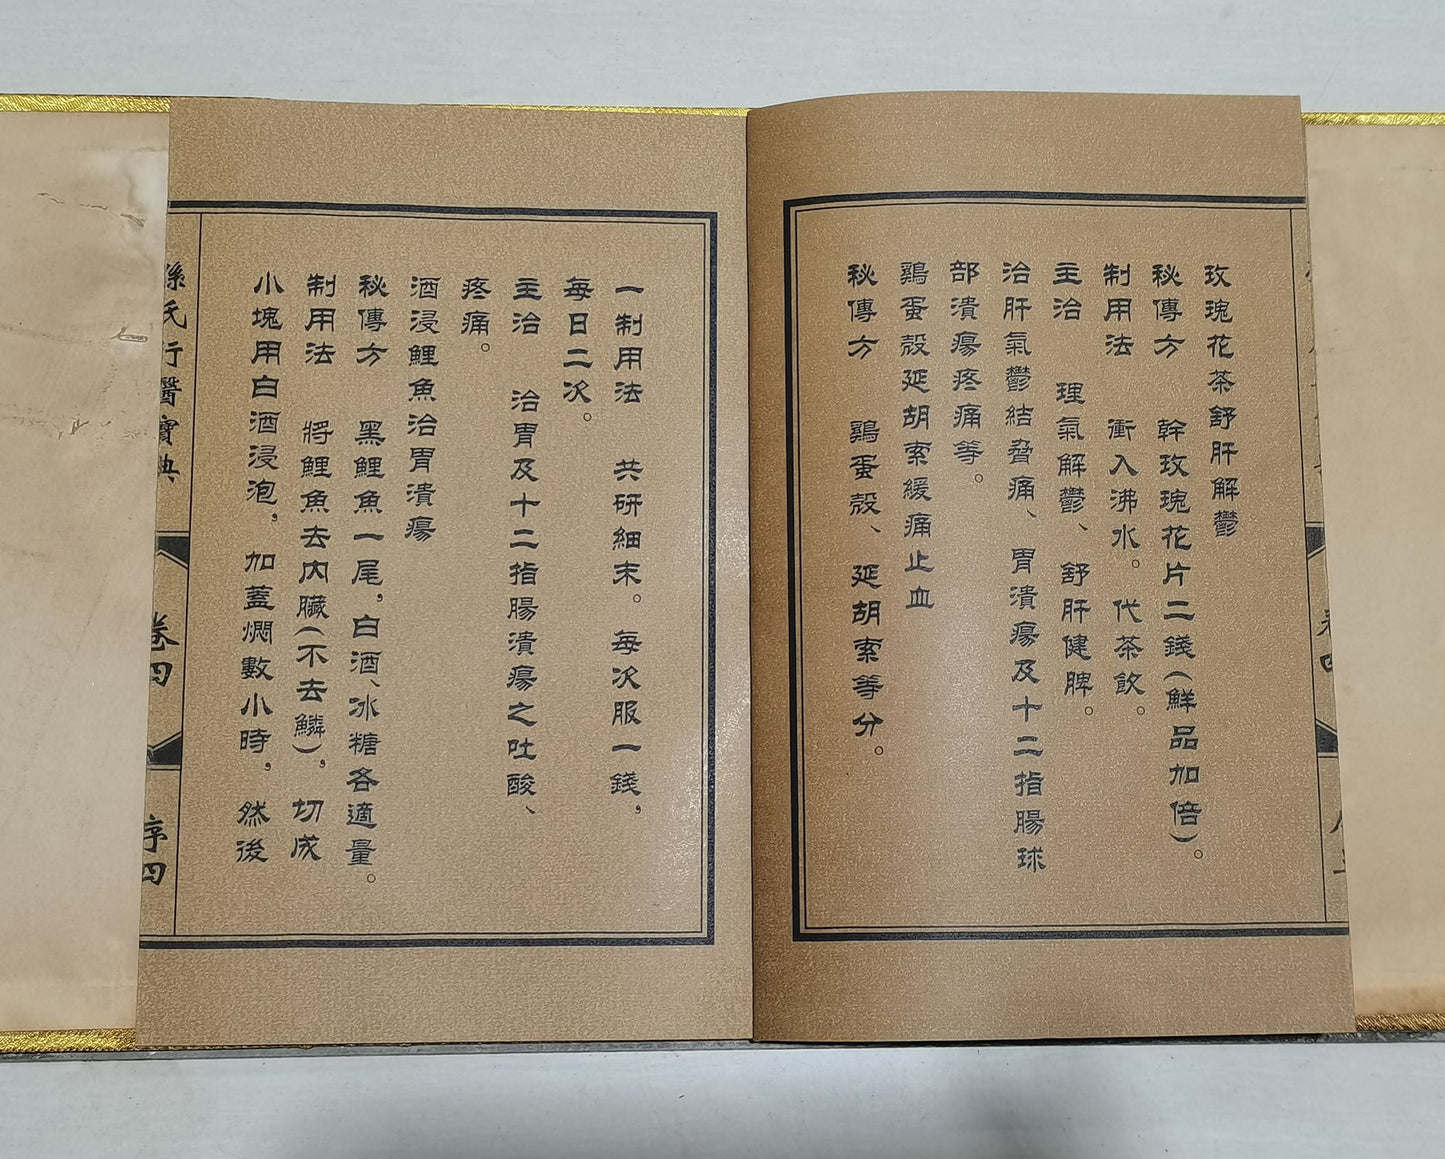 玫瑰花茶舒肝解鬱
秘傳方　幹玫瑰花片二錢(鮮品加倍)。
制用法　衝入沸水。代茶飲。
主治　理氣解鬱、舒肝健脾。
治肝氣鬱結脅痛、胃潰瘍及十二指腸球
部潰瘍疼痛等。
鷄蛋殼延胡索緩痛止血
秘傳方　鷄蛋殼、延胡索等分。
一制用法　共研細末。每次服一錢，
每日二次。
主治　治胃及十二指腸潰瘍之吐酸、
疼痛。
酒浸鯉魚治胃潰瘍
秘傳方　黑鯉魚一尾，白酒、冰糖各適量。
制用法　將鯉魚去內臟(不去鱗)，切成
小塊用白酒浸泡，加蓋燜數小時，然後
孫氏行醫寶典
卷四
序四